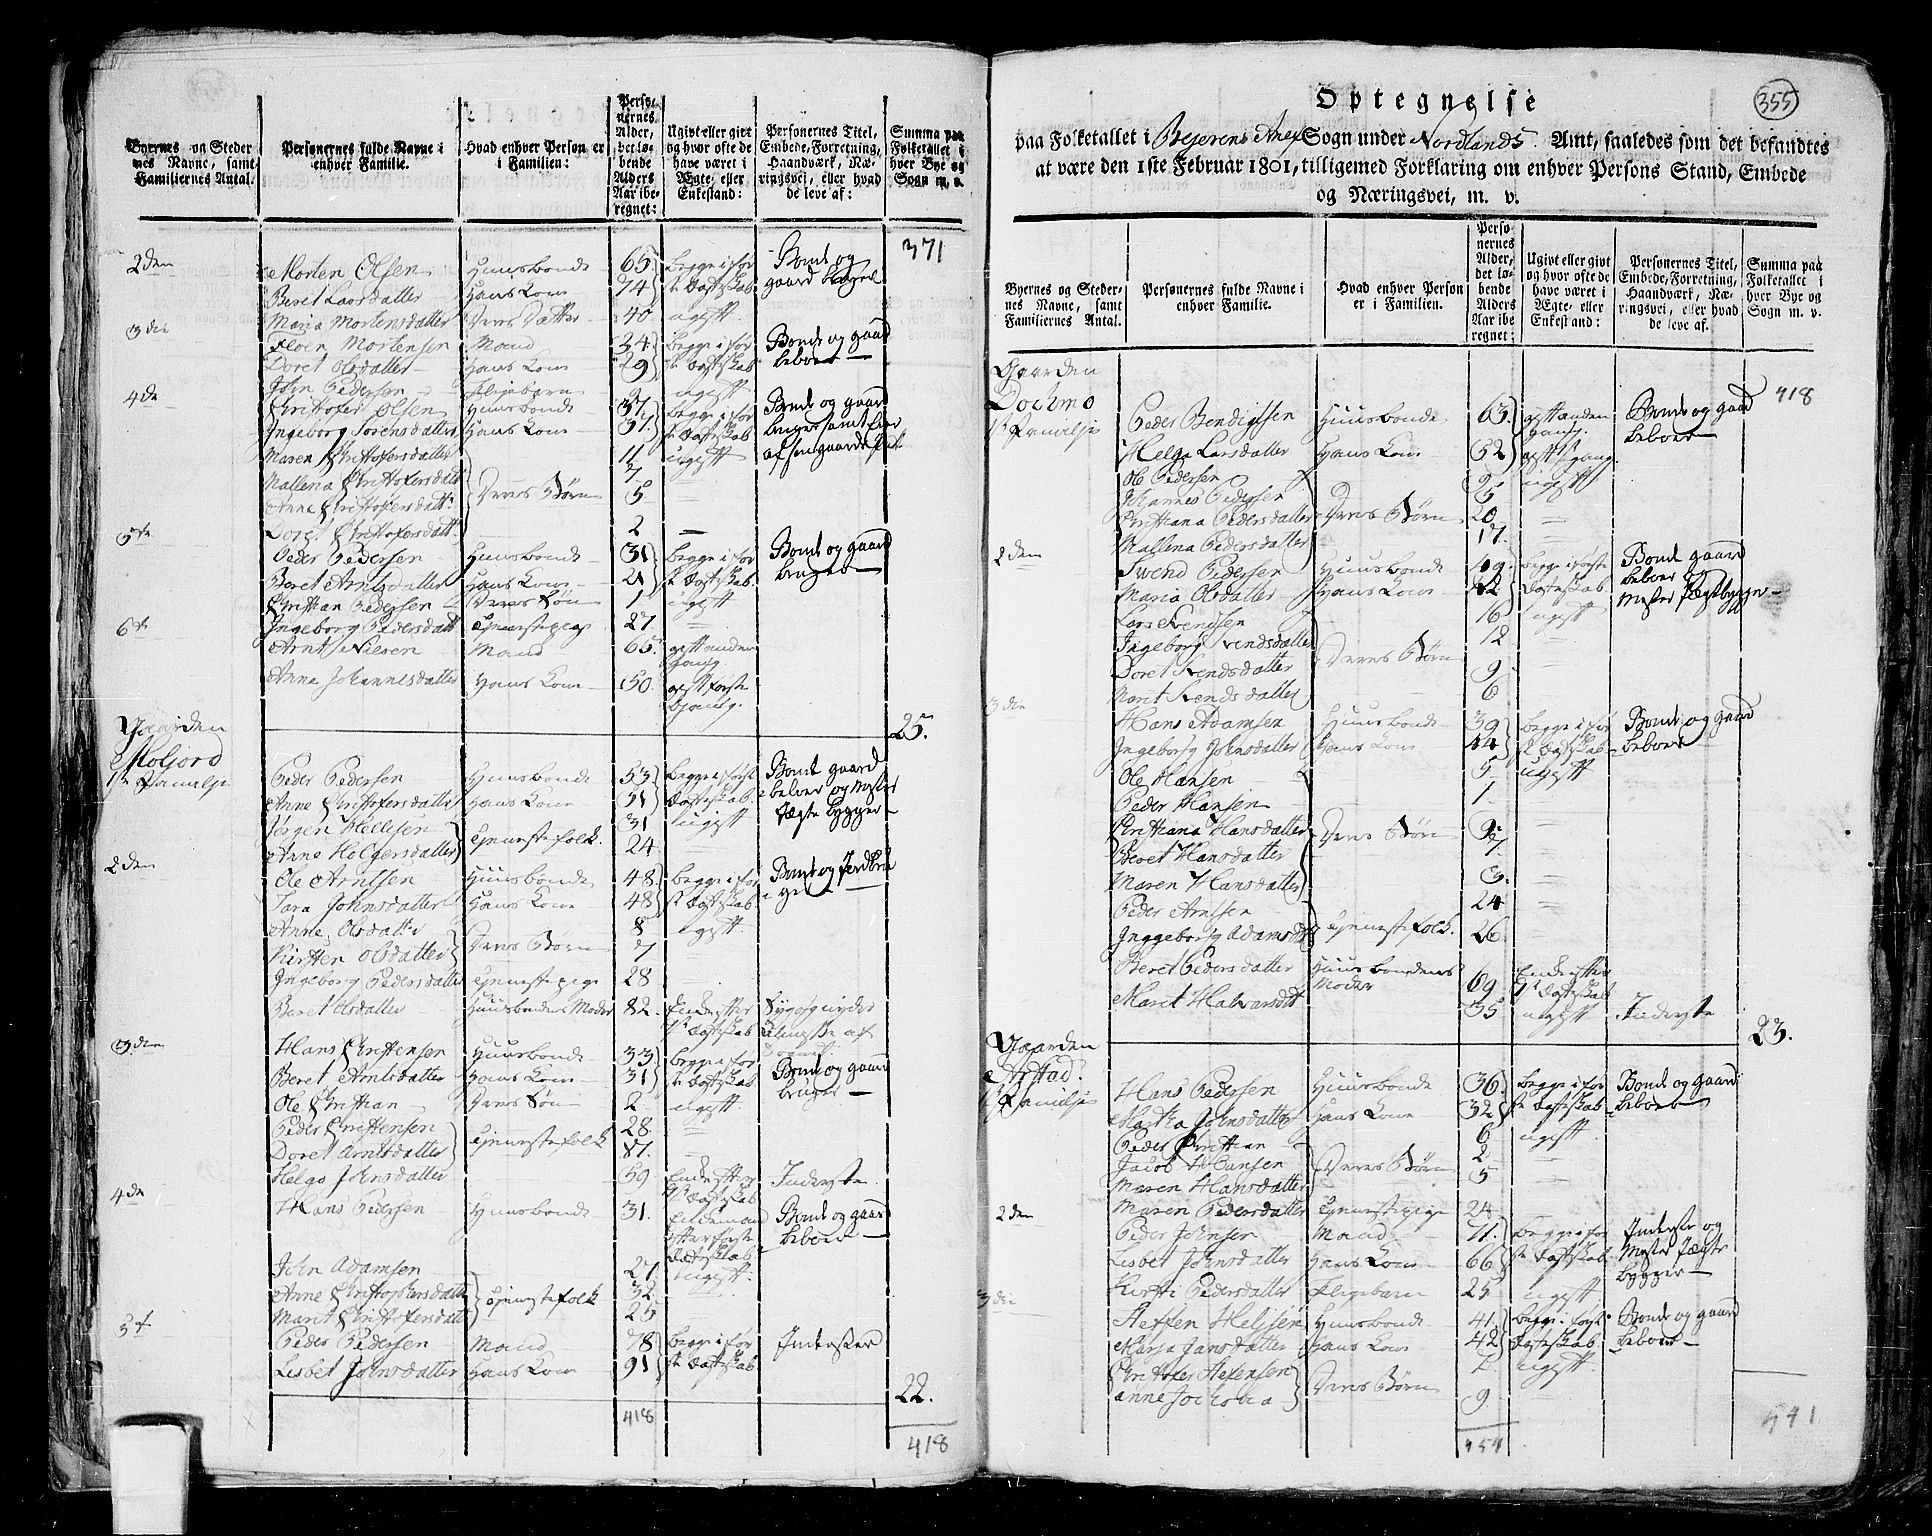 Byernes og Steder
nes Navne, samt
Familiernes Antal.
Personernes fulde Navne i
enhver Familie.
Hvad enhver Person er
i Familien:
Perso-
nernes
Alder,
det lø-
bende
Alders
Aar ibe-
regnet:
Ugivt eller givt
og hvor ofte de
have været i
Ægte- eller
Enkestand:
Personernes Titel,
Embede, Forretning,
Haandværk, Næ-
ringsvei, eller hvad
de leve af:
Summa paa
Folketallet i
hver Bye og
Sogn m. v.
371
2den Morten Olsen Huusbonde 65 begge i før Bonde og
Beret Larsdatter Hans Kone 74 ste Ægteskab gaard
Maria Mortensdatter Deres Datter 40 ugift
3die Mortensen Mand 34 begge i før Bonde og gaard
Doret Olsdatter Hans Kone 29 ste Ægteskab beboer
John Pedersen Flejebørn ugift
4de Christofer Olsen Huusbonde 37 begge i før Bonde og gaard
Ingeborg Sørensdatter Hans Kone 37 ste Ægteskab
Maren Christofersdatter 11 ugift
Mallena Christofersdatt 7
Anne Christofersdatt Deres Børn 5
Doret Christofersdatt 2
5te Peder Pedersen Huusbonde 31 begge i før Bonde og gaard
Beret Arntsdatter Hans Kone 21 ste Ægteskab bruger
Christian Pedersen Deres Søn 1 ugift
Ingeborg Pedersdatt tjenestepige 27
6te Arnt Nilsen Mand 65 gift anden
Gang
Anne Johannesdatter Hans Kone 50 gift første
Gang
Gaarden 25.
Moljord
1te Familje Peder Pedersen Huusbonde 53 begge i første Bonde gaard
Anne Christofersdatter Hans Kone 51 Ægteskab beboer og Mester
Jørgen Hellesen 31 ugift Jægte bygger
Anne Holgersdatter tjenestefolk 24
2den Ole Arntsen Huusbonde 48 begge i før Bonde og Jordbru
Sara Johnsdatter Hans Kone 48 ste Ægteskab ger
Anne Olsdatter 8 ugift
Kirsten Olsdatter Deres Børn 7
Ingeborg Pedersdatter tjenestepige 28
Beret Olsdatter Huusbondens Moder 82 Enke efter
1te Ægteskab Almisse af
3die Hans Christensen Huusbonde 33 begge i før
Beret Arntsdatter Hans Kone 31 ste Ægteskab Bonde og gaard
Ole Christian Deres Søn 2 ugift bruger
Peder Christensen 28
Doret Arntsdatter tjenestefolk 17
Helga Johnsdatter 59 Enke efter Inderste
1te Ægteskab
4de Hans Pedersen Huusbonde 31 Enkemand Bonde og gaard
efter første beboer
Ægteskab
John Adamsen 27 ugift
Anne Christophersdatt tjenestefolk 32
Marit Christofersdatt 25
5te Peder Pedersen Mand 78 begge i før Inderster
Lisbet Johnsdatter Hans Kone 91 ste Ægteskab
22.
418 418
355
Optegnelse
paa Folketallet i Bejerens Anex Sogn under Nordlands Amt, saaledes som det befandtes
at være den 1ste Februar 1801, tilligemed Forklaring om enhver Persons Stand, Embede
og Næringsvei, m. v.
Byernes og Steder-
nes Navne, samt
Familiernes Antal.
Personernes fulde Navne i
enhver Familie.
Hvad enhver Person
er i Familien.
Perso-
nernes
Alder,
det lø-
bende
Alders
Aar ibe-
regnet:
Ugivt eller givt
og hvor ofte de
have været i
Ægte- eller
Enkestand:
Personernes Titel,
Embede, Forretning,
Haandværk, Næ-
ringsvei, eller hvad
de leve af.
Summa paa
Folketallet i
hver Bye og
Sogn m. v.
Gaarden
Dochmo 418
1te Familje Peder Bendigtsen Huusbonde 63 gift anden Bonde og gaard
gang beboer
Helga Larsdatter Hans Kone 52 gift 1 gang
Ole Pedersen 9 ugift
Johannes Pedersen 5
Christiana Pedersdatter Deres Børn 20
Mallena Pedersdatter 17
2den Swend Pedersen Huusbonde 49 begge i første Bonde gaard
Maria Olsdatter Hans Kone 42 Ægteskab beboer og
Lars Svendsen 16 ugift Mester Jægtbygger
Ingeborg Svendsdatter 12
Doret Svendsdatter Deres Børn 9
Marit Svendsdatter 6
3die Hans Adamsen Huusbonde 39 begge i før Bonde og gaard
Ingeborg Johnsdatter Hans Kone 44 ste Ægteskab beboer
Ole Hansen 5 ugift
Peder Hansen 1
Christiana Hansdatter Deres Børn 9
Beret Hansdatter 7
Maren Hansdatter 3
Peder Arntsen 24
Inggeborg Adamsdt tjenestefolk 26
Beret Pedersdatter Huusbondens
Moder 69 Enke efter
1te Ægteskab
Marit Halvarsdtt 35 ugift Inderste
Gaarden 23.
Arstad
1te Familje Hans Pedersen Huusbonde 36 begge i før Bonde og gaard
Martha Johnsdatter Hans Kone 32 ste Ægteskab beboer
Peder Christian 6 ugift
Jacob Hansen Deres Børn 2
Maren Hansdatter 5
Maren Pedersdatter tjenestepige 24
2den Peder Johnsen Mand 71 begge i før Inderste og
Lisbet Johnsdatter Hans Kone 66 ste Ægteskab Mester Jægte
Kirsti Pedersdatter Flejebarn 25 ugift bygger
3die Steffen Heljsen Huusbonde 41 begge i første Bonde og gaard
Marja Jansdatter Hans Kone 42 Ægteskab beboer
Christofer Stefensen ugift
Anne Deres Børn 9
441